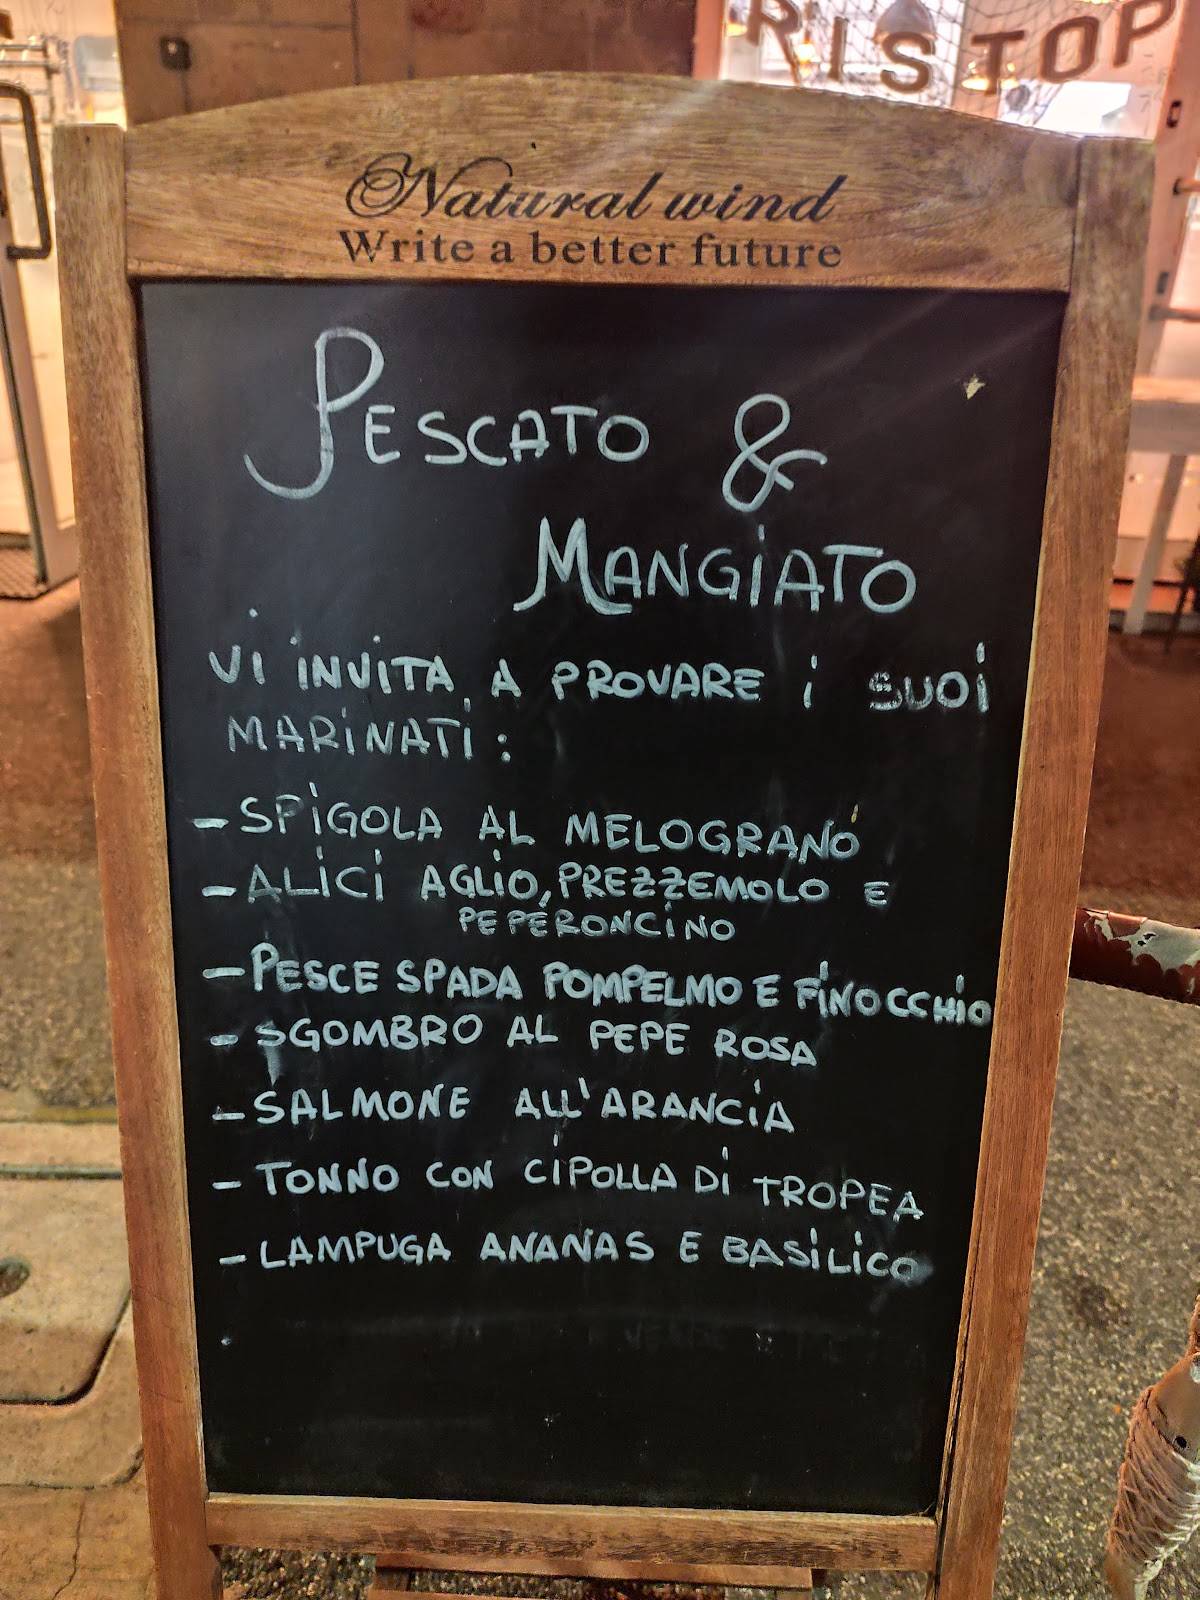 RISTOP
Natural wind
Write a better future
PESCATO &
MANGIATO
Vi INViTA A PROVARE i SUOi
MARiNATi:
- SPiGOLA AL MELOGRANO
- ALiCi AGLiO, PREZZEMOLO E
PEPERONCiNO
- PESCE SPADA POMPELMO E FiNOCCHiO
- SGOMBRO AL PEPE ROSA
- SALMONE ALL'ARANCiA
- TONNO CON CiPOLLA Di TROPEA
- LAMPUGA ANANAS E BASiLiCO